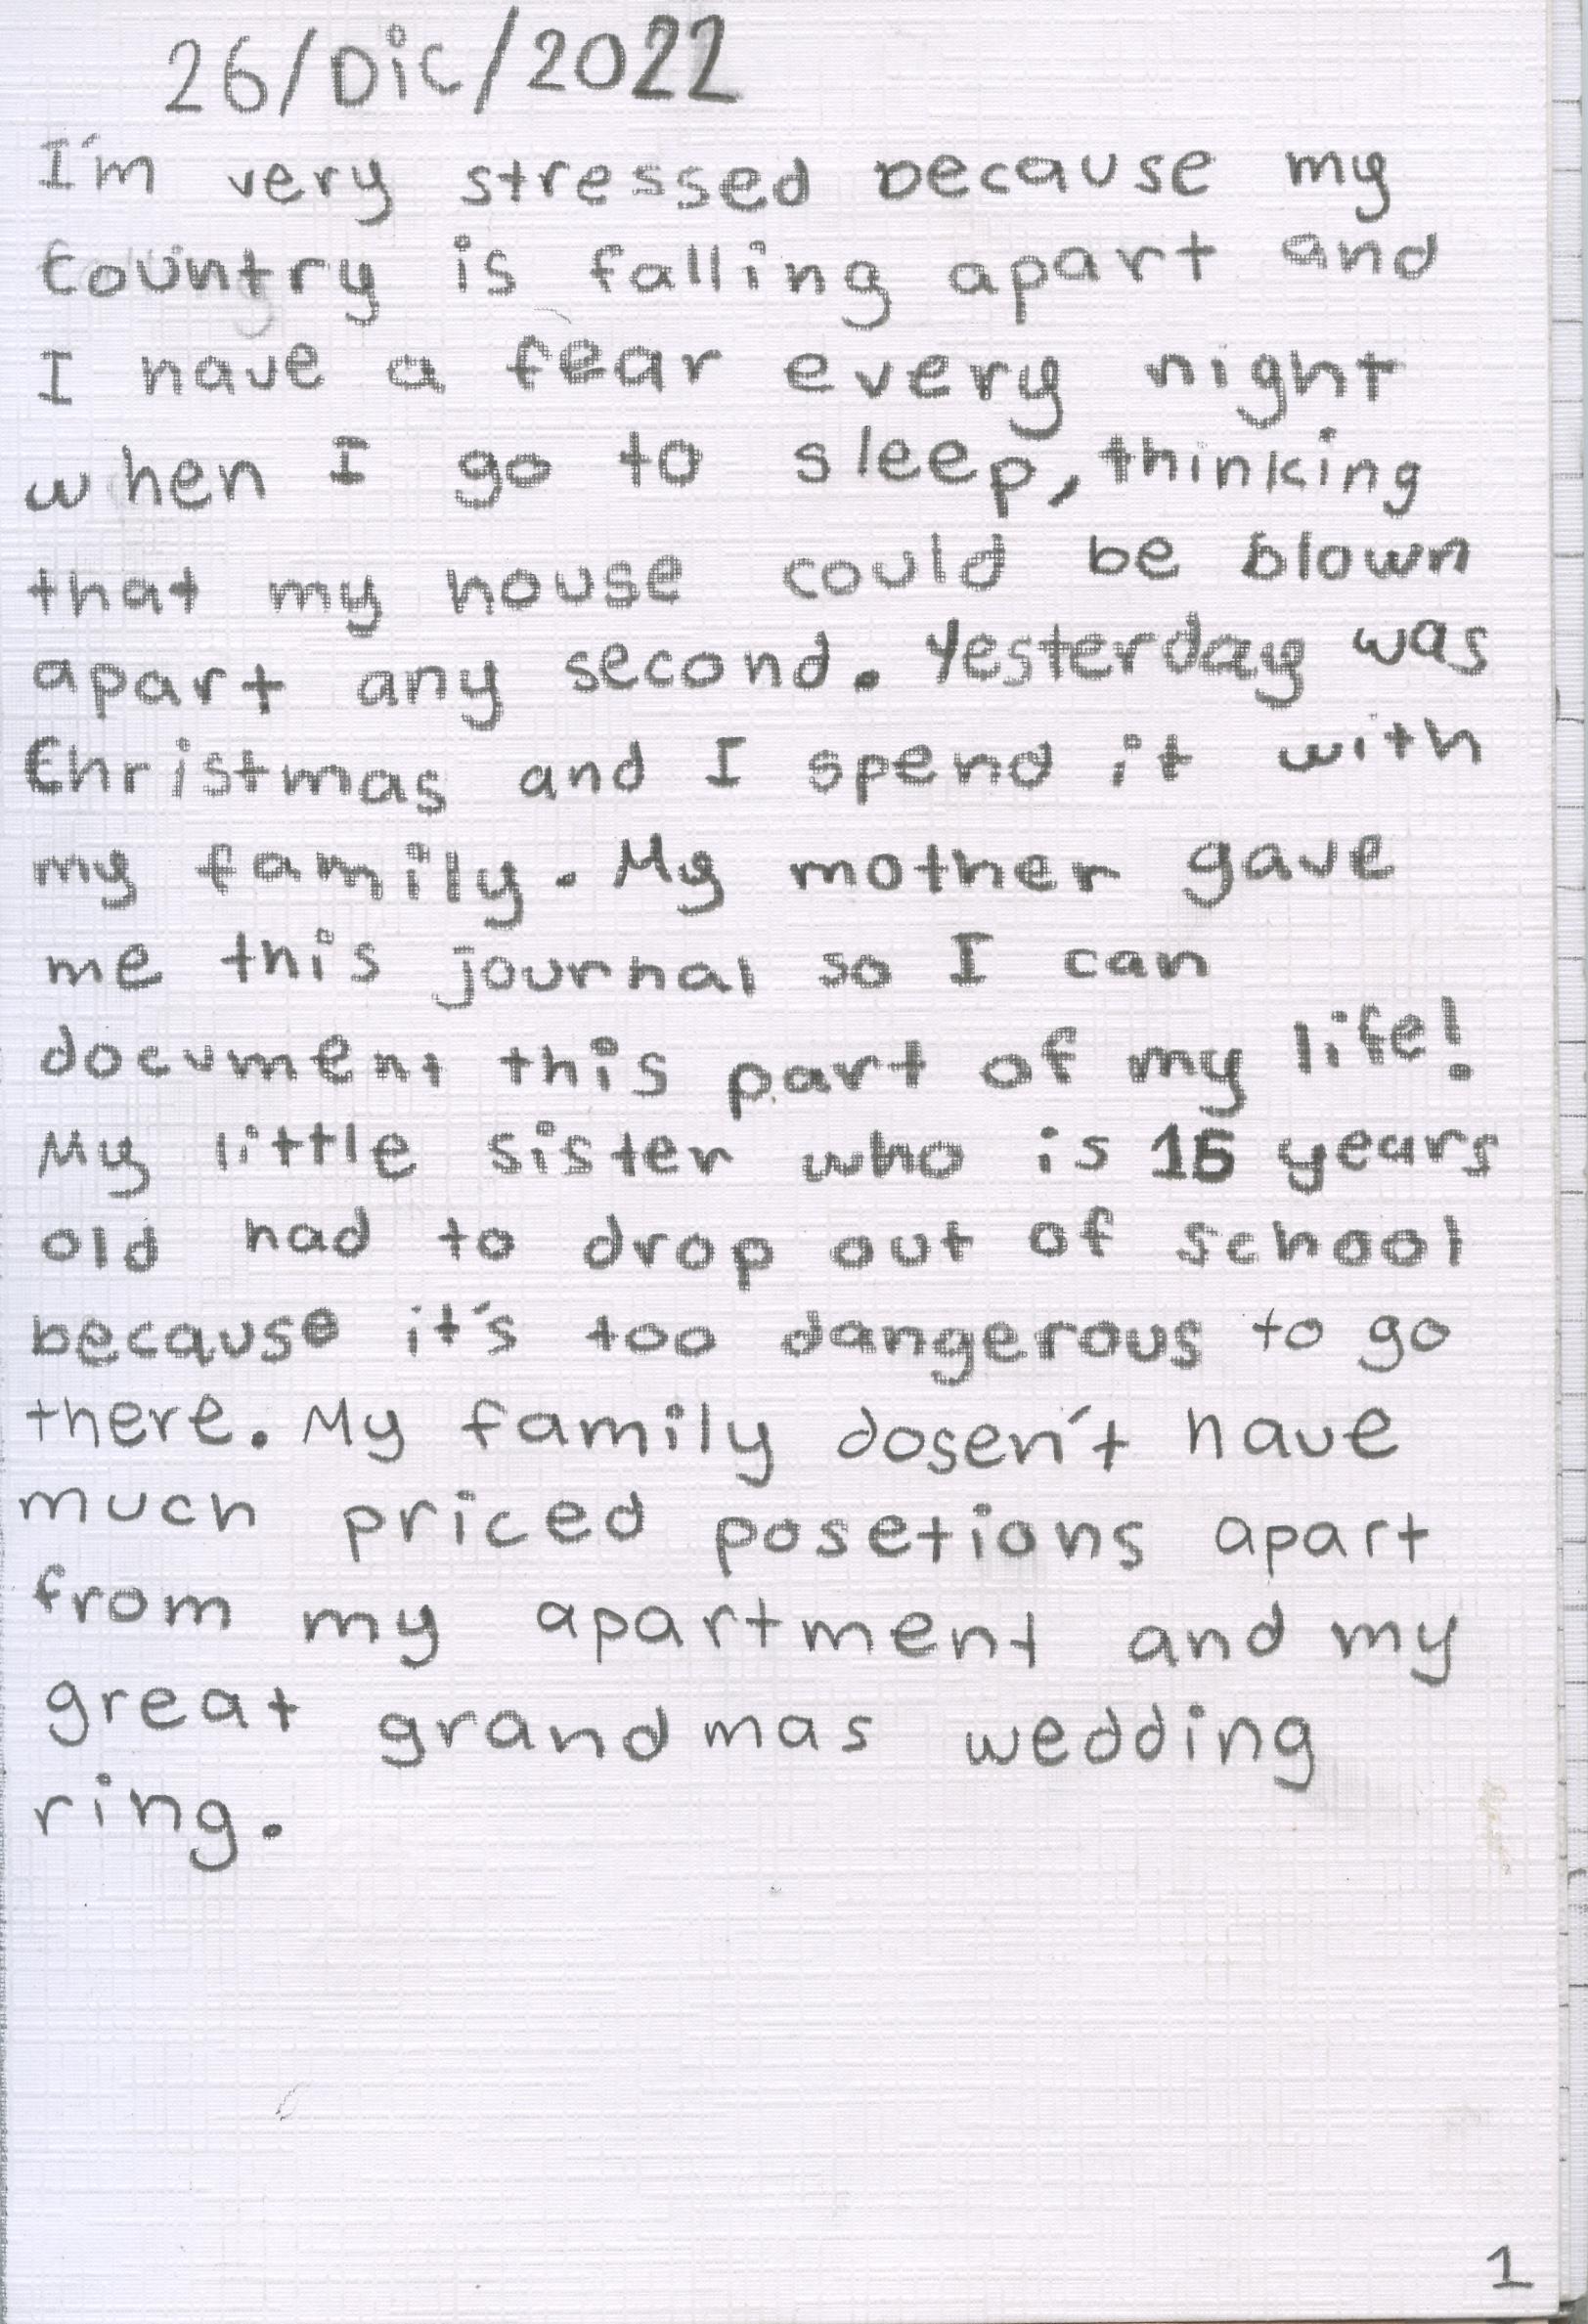 26/Dic/2022
I'm very stressed because my
Country is falling apart and
I have a fear every night
when I go to sleep, thinking
that my house could be blown
apart any second. Yesterday was
Christmas and I spend it with
my family. My mother gave
me this journal so I can
document this part of my life!
My little sister who is 15 years
old had to drop out of school
because it's too dangerous to go
there. My family dosen't have
much priced posetions apart
from my apartment and my
great grandmas wedding
ring.
1